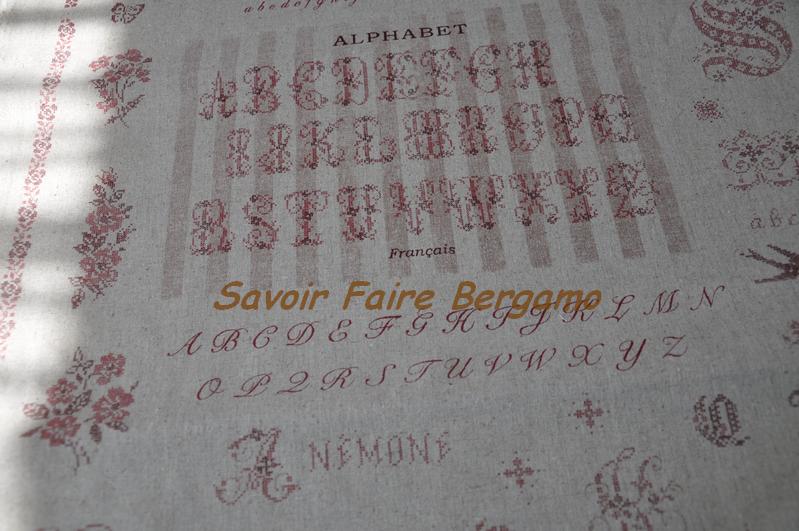 abcdefg
ALPHABET
S
ABCDEFGH
IJKLMNOPQ
RSTUVWXYZ
abc
Français
Savoir Faire Bergamo
A B C D E F G H I J K L M N
O P Q R S T U V W X Y Z
ANÉMONE